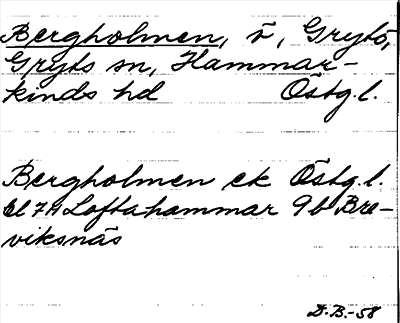 Bergholmen, ö, Grytö,
Gryts sn, Hammar-
kinds hd Östg.l.
Bergholmen ek Östg.l.
bl 7H Loftahammar 9b Bre-
viksnäs
D.B.-58